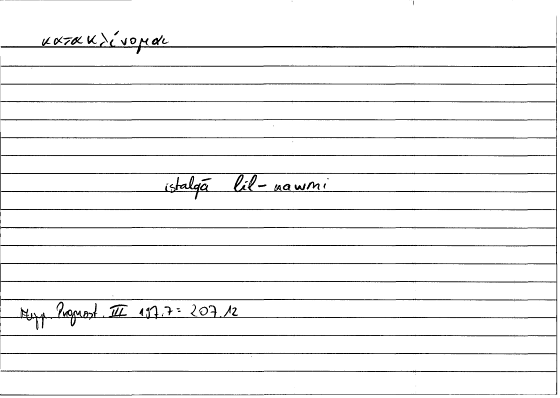 κατακλίνομαι
istalqā lil-nawmi
Hipp. Prognost. III 197.7 = 207.12